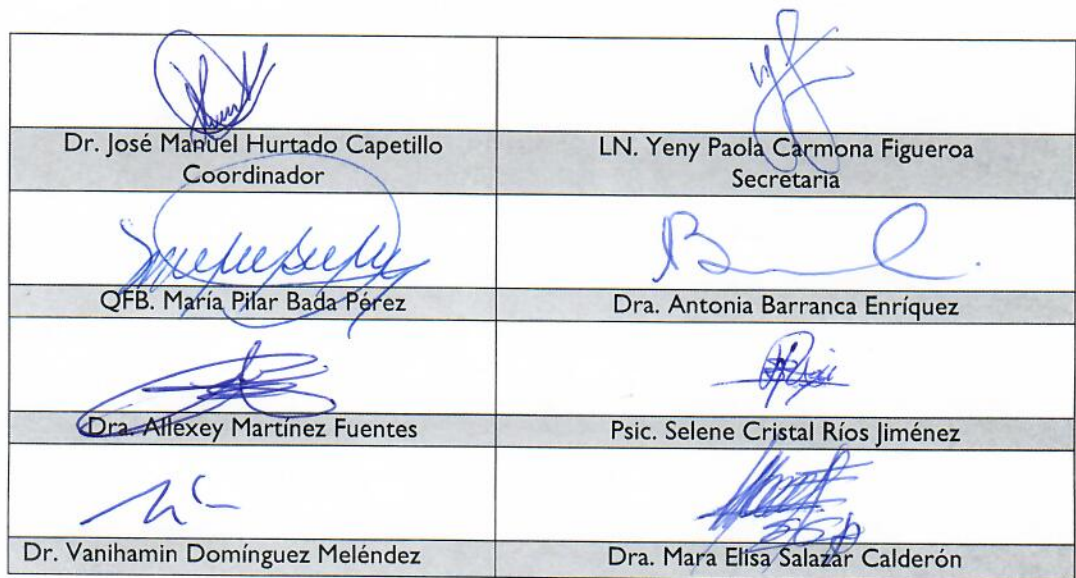 Dr. José Manuel Hurtado Capetillo
Coordinador
LN. Yeny Paola Carmona Figueroa
Secretaria
QFB. María Pilar Bada Pérez
Dra. Antonia Barranca Enríquez
Dra. Allexey Martínez Fuentes
Psic. Selene Cristal Ríos Jiménez
Dr. Vanihamin Domínguez Meléndez
Dra. Mara Elisa Salazar Calderón